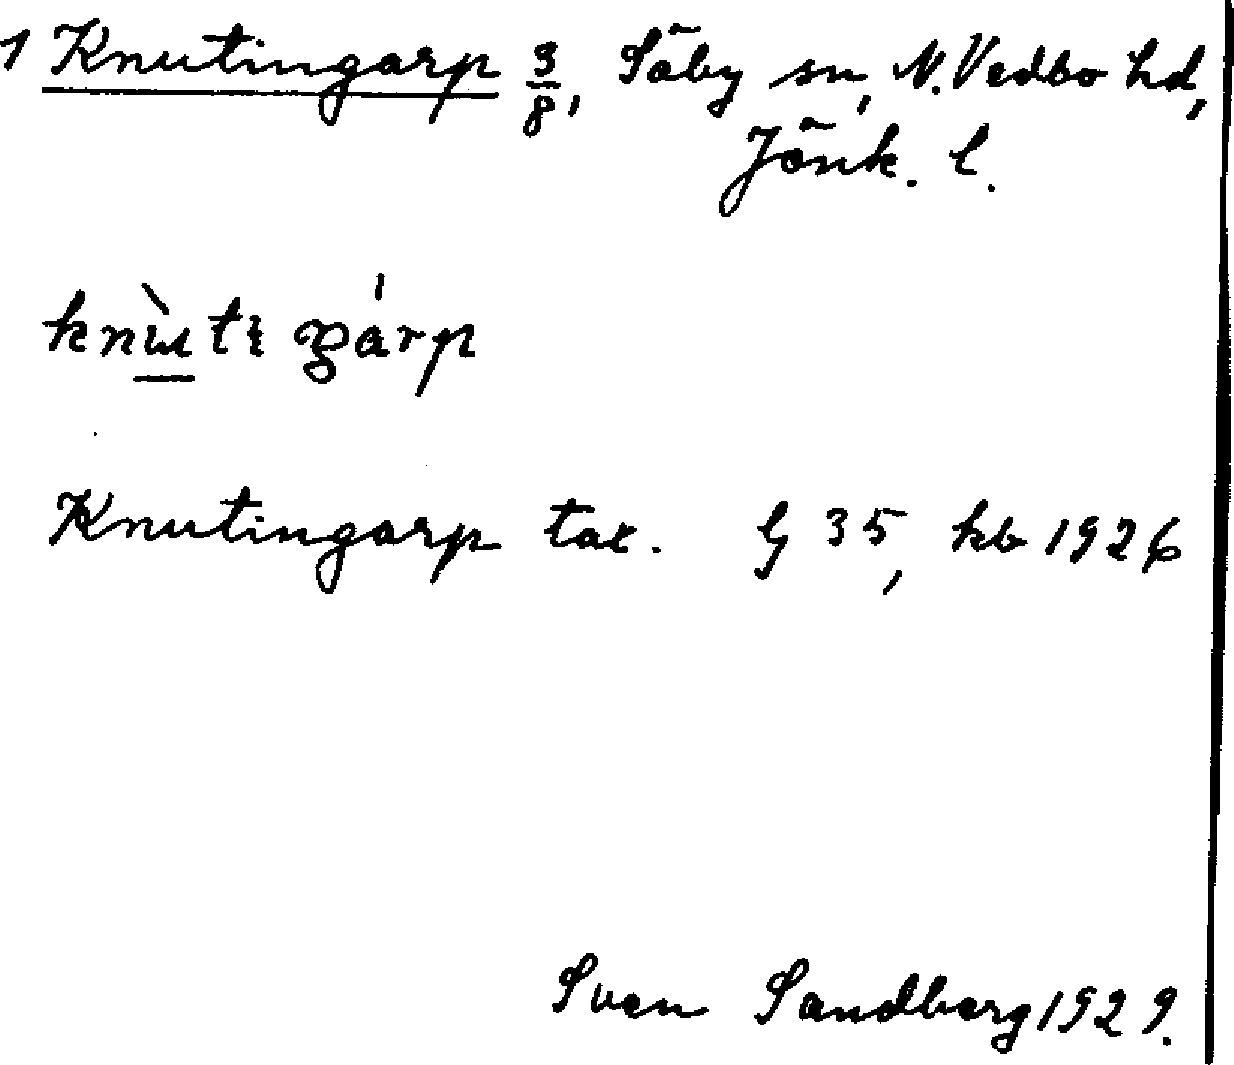 1 Knutingarp 3/8, Säby sn, N. Vedbo hd,
Jönk. l.
knùti gárp
Knutingarp tax. G 35, kb 1926
Sven Sandberg 1929.